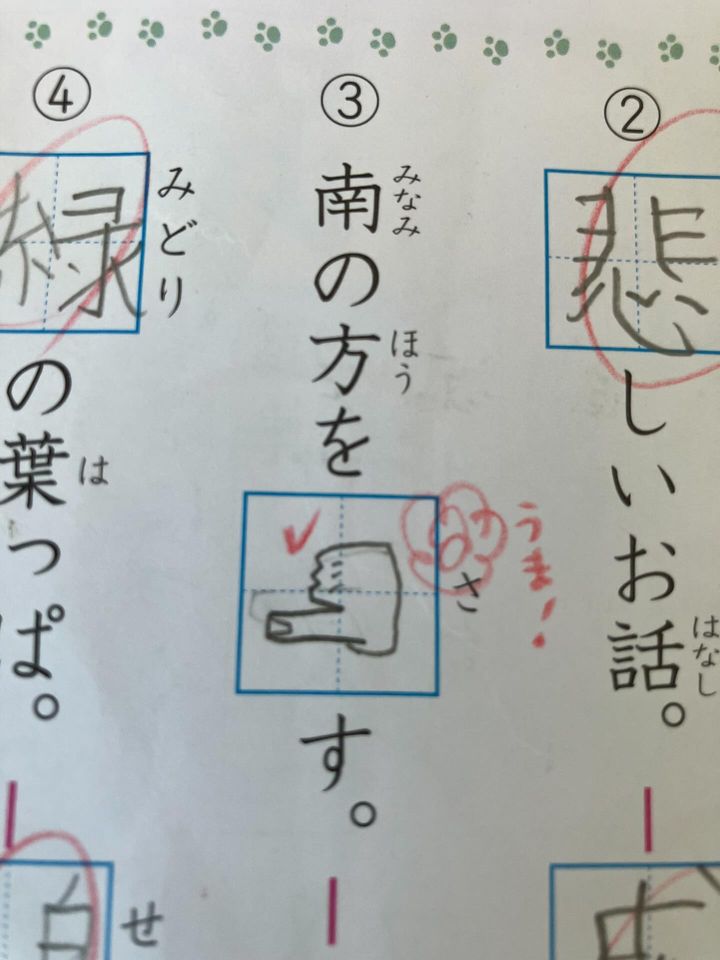 ②
悲しいお話。
はなし
③
南の方を
みなみ
ほう
さ
す。
うま！
④
緑の葉っぱ。
みどり
は
せ